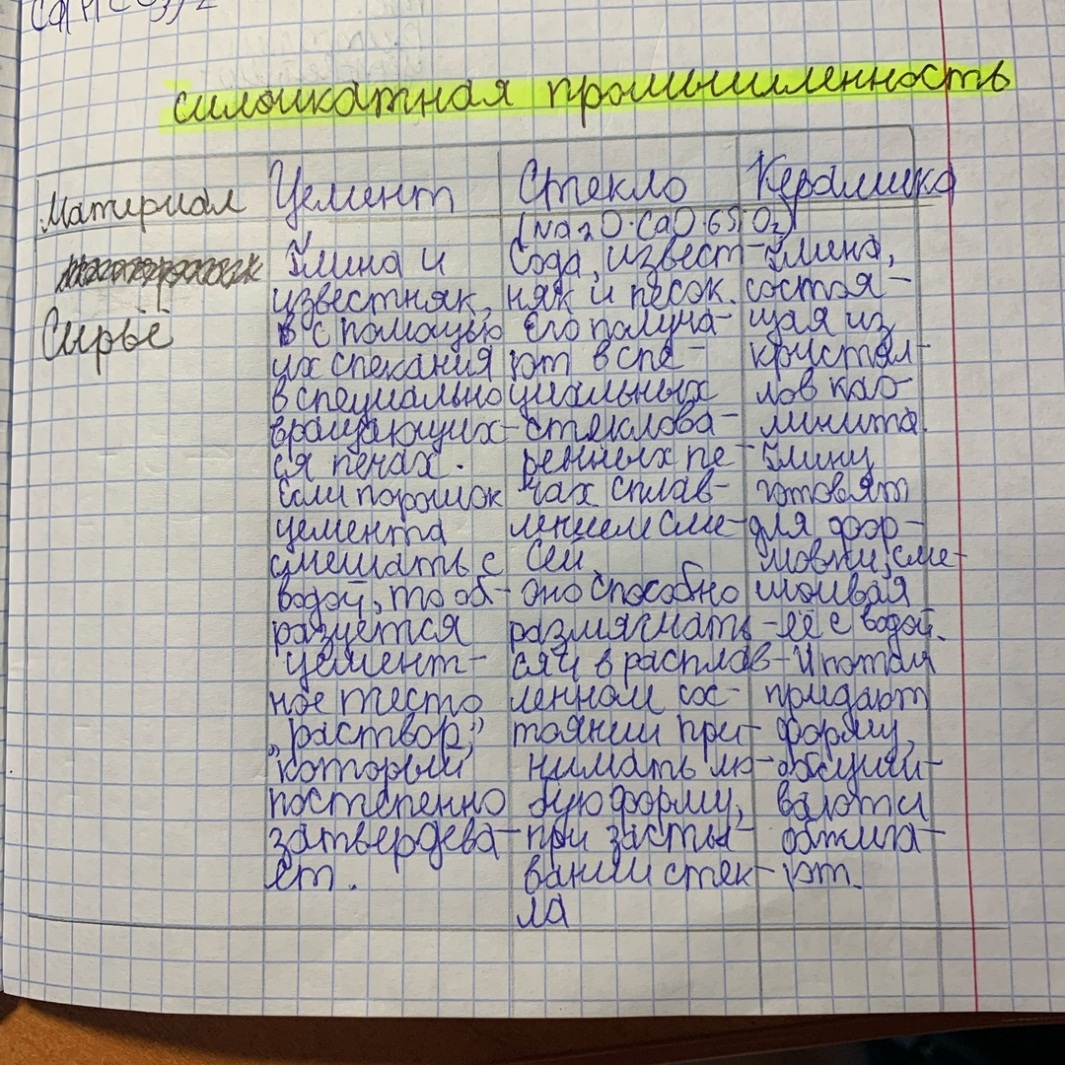 Ca(HCO3)2
силикатная промышленность
Материал
Сырьё
Цемент
Глина и
известняк,
в с помощью
их спекания
в специально
вращающих-
ся печах.
Если порошок
цемента
смешать с
водой, то об-
разуется
цемент-
ное тесто
„раствор,"
который
постепенно
затвердева-
ет.
Стекло
(Na2O·CaO·6SiO2)
Сода, извест-
няк и песок.
Его получа-
ют в спе-
циальных
стеклова-
ренных пе-
чах сплав-
лением сме-
сей
оно способно
размягчать-
ся и в расплав-
ленном сос-
тоянии при-
нимать лю-
бую форму,
при засты-
вании стек-
ла
Керамика
Глина,
состоя-
щая из
кристал-
лов као-
линита.
Глину
готовят
для фор-
мовки, сме-
шивая
её с водой.
И потом
придают
форму,
обжига-
ют.